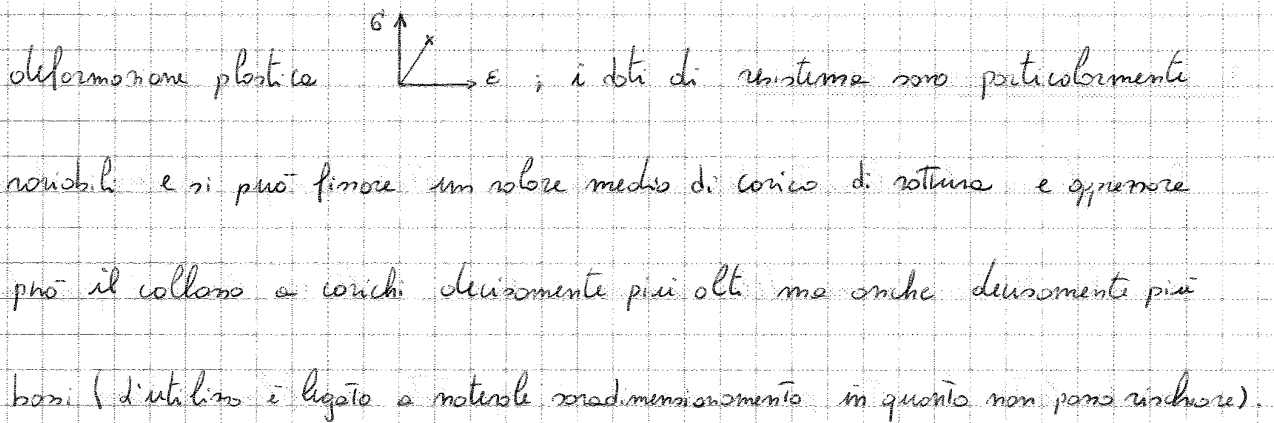 deformazione plastica σ ε ; i dati di resistenza sono particolarmente
variabili e si può fissare un valore medio di carico di rottura e oppressore
può il collasso a carichi decisamente più alti ma anche decisamente più
bassi (L'utilizzo è legato a notevole sovradimensionamento in quanto non posso rischiare).